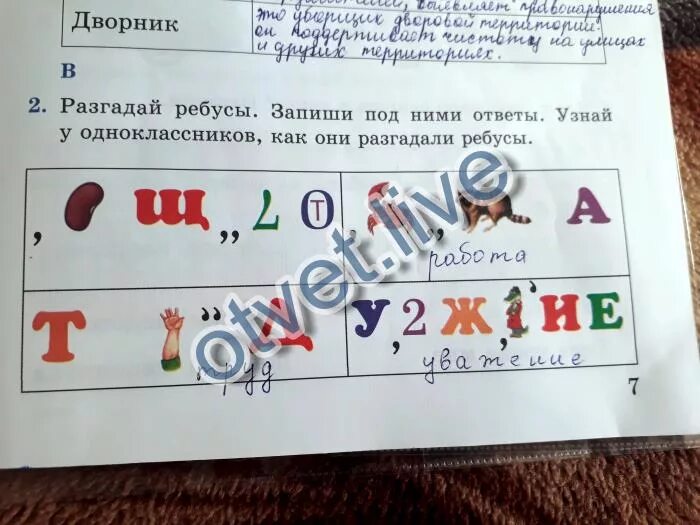 Дворник
выявляет правонарушения
это уборщик дворовой территории.
он поддерживает чистоту на улицах
и других территориях.
В
2. Разгадай ребусы. Запиши под ними ответы. Узнай
у одноклассников, как они разгадали ребусы.
, Щ ,, 7 О Т
, ,, А
работа
Т ,, Д
труд
У , 2 Ж , ' И Е
уважение
7
otvet.live